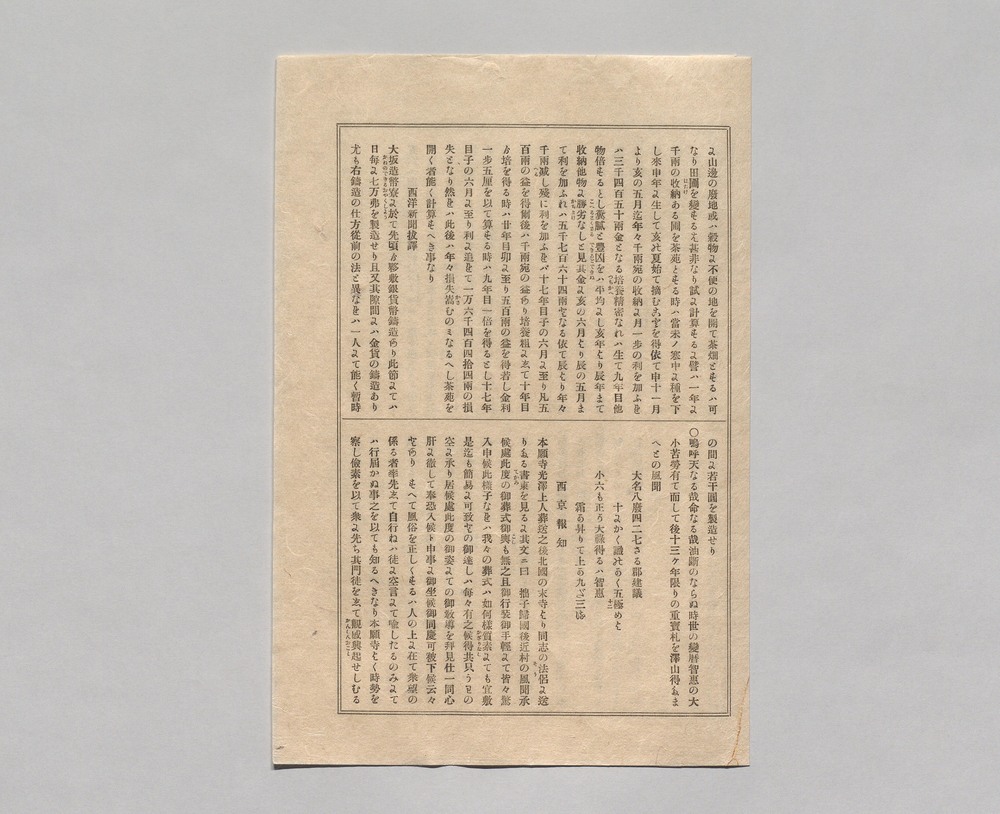 よ山邊の廢地或ハ穀物よ不便の地を開て茶畑とするハ可
なり田圃を變するハ甚非なり試よ計算するよ譬ハ一年よ
千兩の收納ある圃を茶苑とする時ハ當未ノ寒中よ種を下
し來申年よ生して亥の夏始て摘むことを得依て申十一月
より亥の五月迄年々千兩宛の收納よ月一步の利を加ふれ
ハ三千四百五十兩金となる培養精密なれハ生て九年目他
物倍するとし糞膩と豐凶をハ平均よし亥年より辰年まて
收納他物よ勝劣なしと見其金よ亥の六月より辰の五月ま
て利を加ふれハ五千七百六十四兩となる依て辰より年々
千兩減し殘に利を加ふれバ十七年目子の六月よ至り凡五
百兩の益を得爾後ハ千兩宛の益あり培養粗よして十年目
より培を得る時ハ廿年目卯よ至り五百兩の益を得若し金利
一步五厘を以て算する時ハ九年目一倍を得るとし十七年
目子の六月よ至り利よ追れて一万六千四百四拾四兩の損
失となり然れハ此後ハ年々損失嵩むのミなるへし茶苑を
開く者能く計算すへき事なり
西洋新聞拔譯
大坂造幣寮よ於て先頃より夥敷銀貨幣鑄造あり此節よてハ
日每よ七万弗を製造せり且又其隙間よハ金貨の鑄造あり
尤も右鑄造の仕方從前の法と異なれハ一人よて能く暫時
の間よ若干圓を製造せり
〇嗚呼天なる哉命なる哉油斷のならぬ時世の變曆智惠の大
小苦勞有て而して後十三ケ年限りの重寶札を澤山得るま
へとの風聞
大名八廢四二七さる郡建議
十よかく議せるく五極めと
小六も正ろ大祿得るハ智惠
霜の昇りて上の九ざ三
西京報知
本願寺光澤上人葬送之後北國の末寺より同志の法侶よ送
りある書柬を見るよ其文ニ曰 拙子歸國後近村の風聞承
候處此度の御葬式御輿も無之且御行裝御手輕よて皆々驚
入申候此樣子なれハ我々の葬式ハ如何樣質素よても宜敷
是迄も簡易よ可致との御達しハ每々有之候得共只うその
空よ承り居候處此度の御姿よての御敎導を拜見仕一同心
肝よ徹して奉恐入候ト申事よ御坐候御同慶可被下候云々
とあり すへて風俗を正しくするハ人の上よ在て衆望の
係る者率先して自行ねハ徒よ空言よて喩したるのみよて
ハ行屆かぬ事之を以ても知るへきなり本願寺よく時勢を
察し儉素を以て衆よ先ち其門徒をして觀感興起せしむる